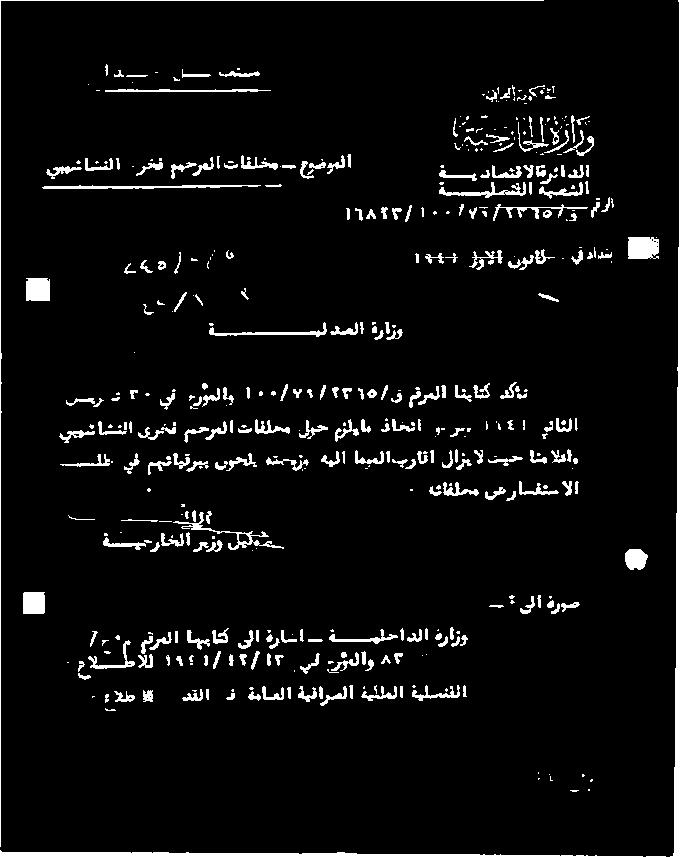 مستعجل جدا
الحكومة العراقية
وزارة الخارجية
الدائرة الاقتصادية
الشعبة القنصلية
الرقم ق/٢٣٦٥/٧٩/١٠٠/١٦٨٢٣
الموضوع ــ مخلفات المرحوم فخري النشاشيبي
بغداد في كانون الاول ١٩٤١
وزارة العدلية
نؤكد كتابنا المرقم ق/٢٣٦٥/٧٩/١٠٠ والمؤرخ في ٣٠ تشرين
الثاني ١٩٤١ اتخاذ مايلزم حول مخلفات المرحوم فخرى النشاشيبي
واعلامنا حيث لايزال اقارب الموما اليه وزوجته يلحون ببرقياتهم في طلب
الاستفسار عن مخلفاته
وزير الخارجية
صورة الى :ــ
وزارة الداخلية ــ اشارة الى كتابها المرقم
٨٣ والمؤرخ في ١٩٤١/١٢/١٣ للاطلاع
القنصلية الملكية العراقية العامة في القدس للاطلاع